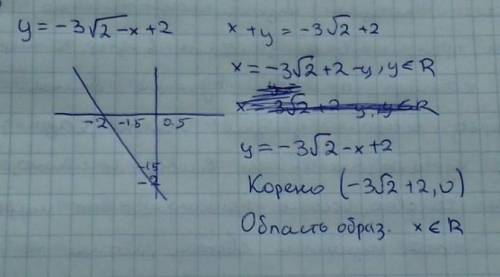 y = -3√2 - x + 2
x + y = -3√2 + 2
x = -3√2 + 2 - y, y ∈ R
x = -3√2 + 2 - y, y ∈ R
y = -3√2 - x + 2
Корено (-3√2 + 2, 0)
Область образ. x ∈ R
-2 -1.5 0.5
-1.5
-2